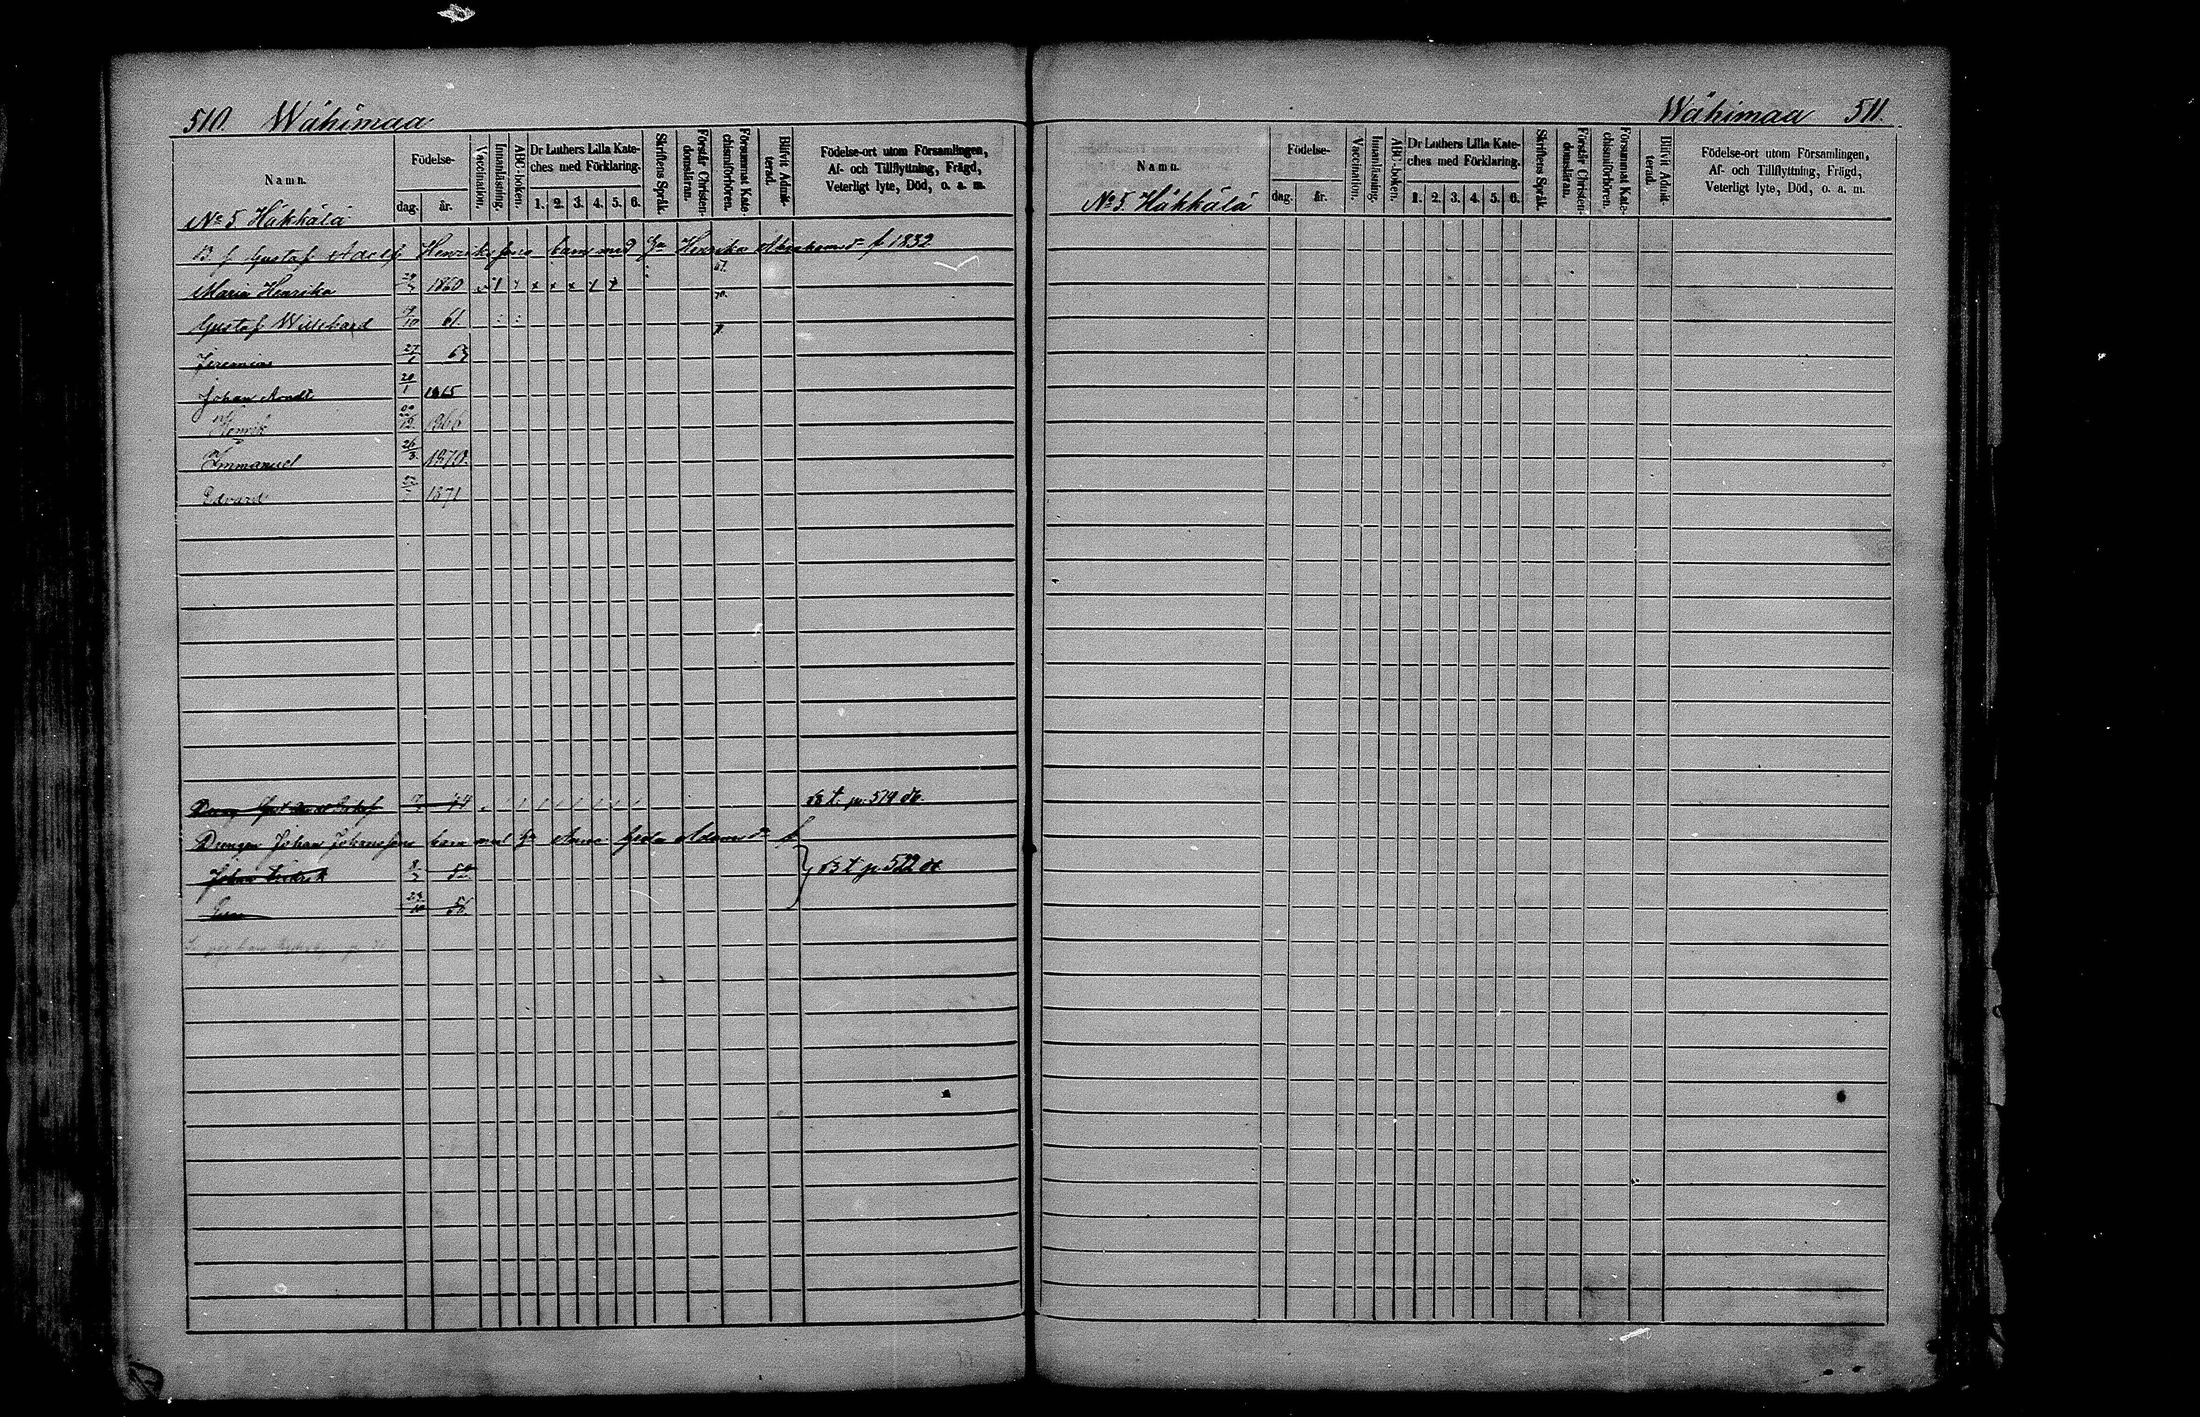 510. Wähimaa
Namn.
Födelse-
dag. år.
Vaccination.
Innanläsning.
ABC-boken.
Dr Luthers Lilla Kate-
ches med Förklaring.
1. 2. 3. 4. 5. 6.
Skriftens Språk.
Förstår Christen-
domsläran.
Försummat Kate-
chismiförhören.
Blifvit Admit-
terad.
Födelse-ort utom Församlingen,
Af- och Tillflyttning, Frägd,
Veterligt lyte, Död, o. a. m.
No 5. Häkkälä
B. f Gustaf Adolf Henrikssons barn med Hu Henrika Abrahamsdr f 1832
Maria Henrika 1860
Gustaf 9/10 61.
Jeremias 27/1 63
Johan 20/1 1865
Henrik 1866
Emmanuel 26/3 1870.
Edvard 1871
t. p. 519
Drengen Johan Johanssons barn med Hu Anna Greta Adamsdr f
Johan Fredrik
t p. 522
23/10 56
Wähimaa 511.
Namn.
Födelse-
dag. år.
Vaccination.
Innanläsning.
ABC-boken.
Dr Luthers Lilla Kate-
ches med Förklaring.
1. 2. 3. 4. 5. 6.
Skriftens Språk.
Förstår Christen-
domsläran.
Försummat Kate-
chismiförhören.
Blifvit Admit-
terad.
Födelse-ort utom Församlingen,
Af- och Tillflyttning, Frägd,
Veterligt lyte, Död, o. a. m.
No 5. Häkkälä